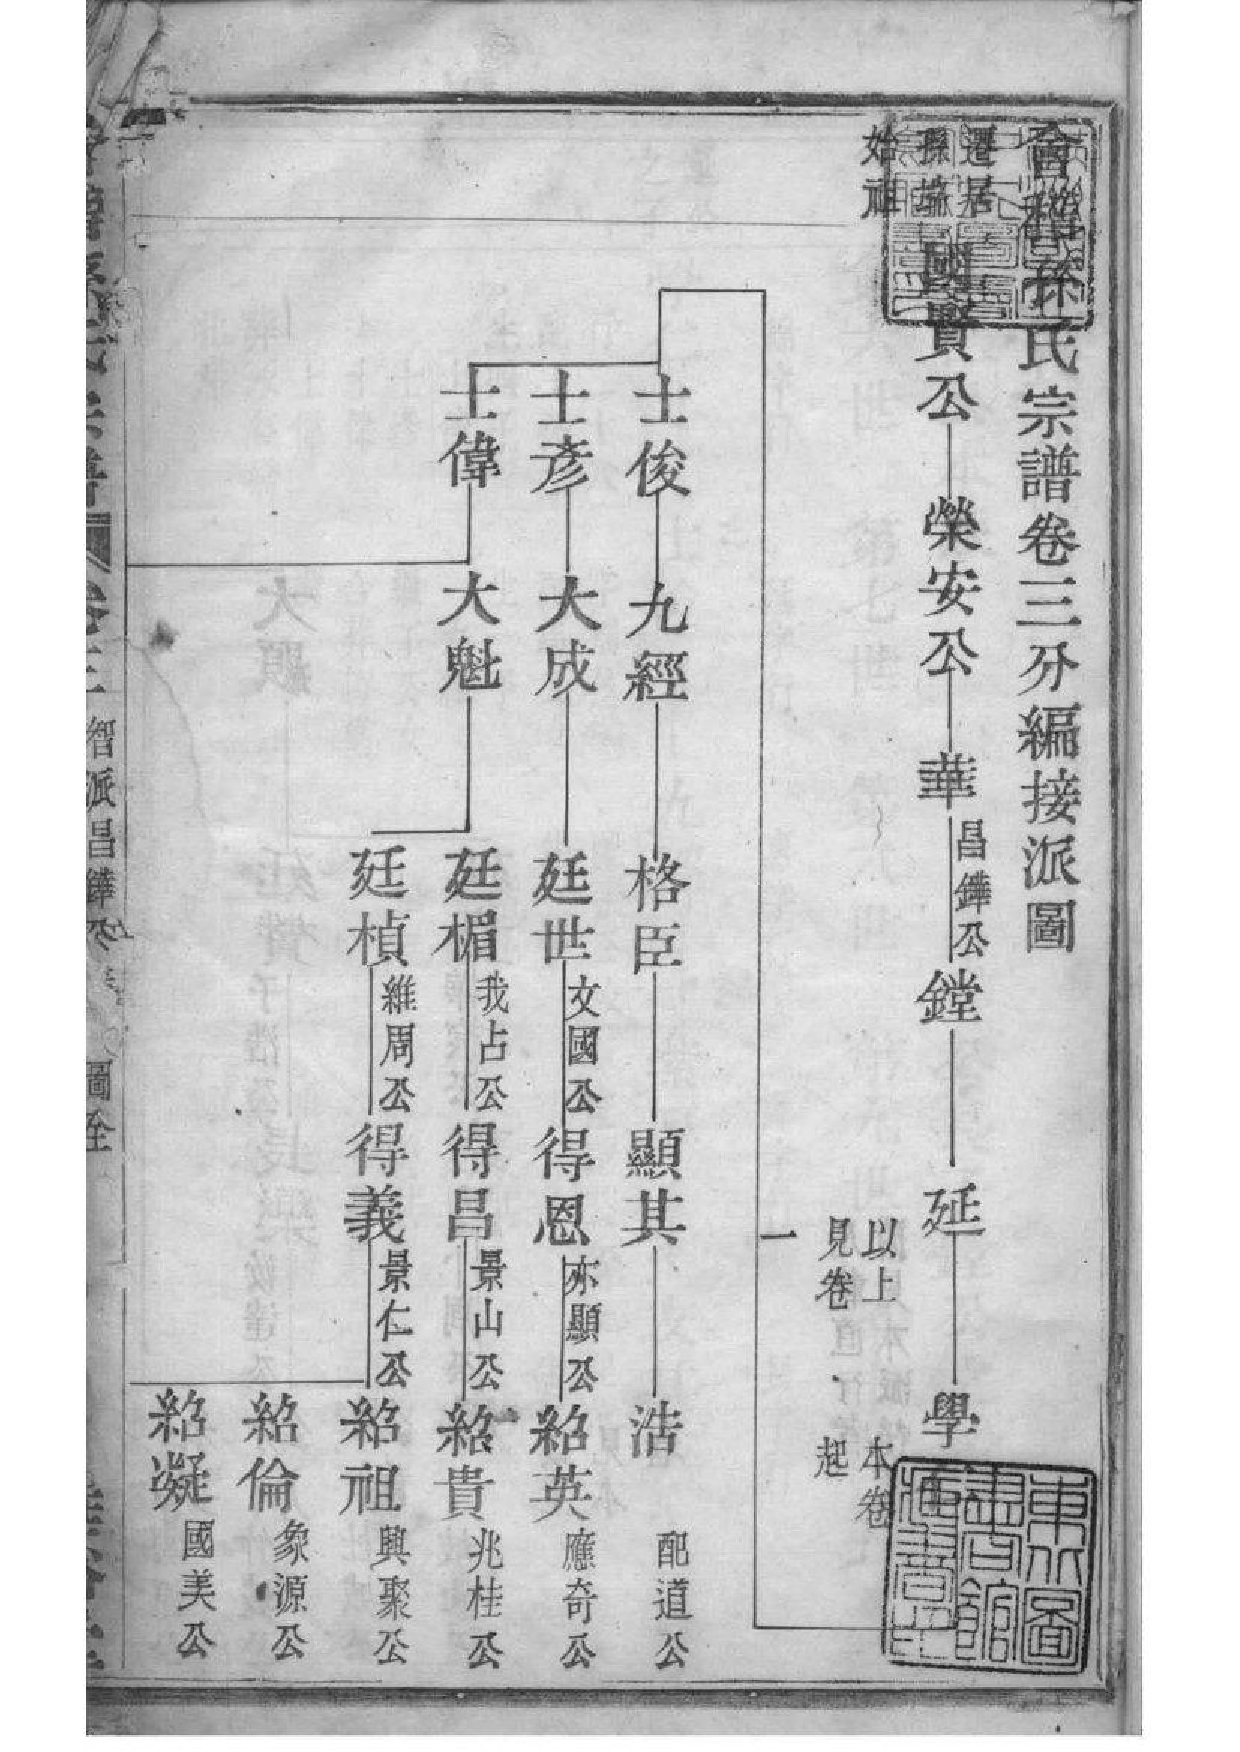 會稽孫氏宗譜卷三分編接派圖
遷居
孫塢
始祖
國賢公
榮安公
華
昌鏵公
鏜
延
學
以上
見卷
一
本卷
起
士俊
九經
格臣
顯其
浩
配道公
士彥
大成
廷世
文國公
得恩
亦顯公
紹英
應奇公
士偉
大魁
廷楣
我占公
得昌
景山公
紹貴
兆桂公
廷楨
維周公
得義
景仁公
紹祖
興聚公
紹倫
象源公
紹凝
國美公
智派昌鏵公
圖全
東北圖
書館